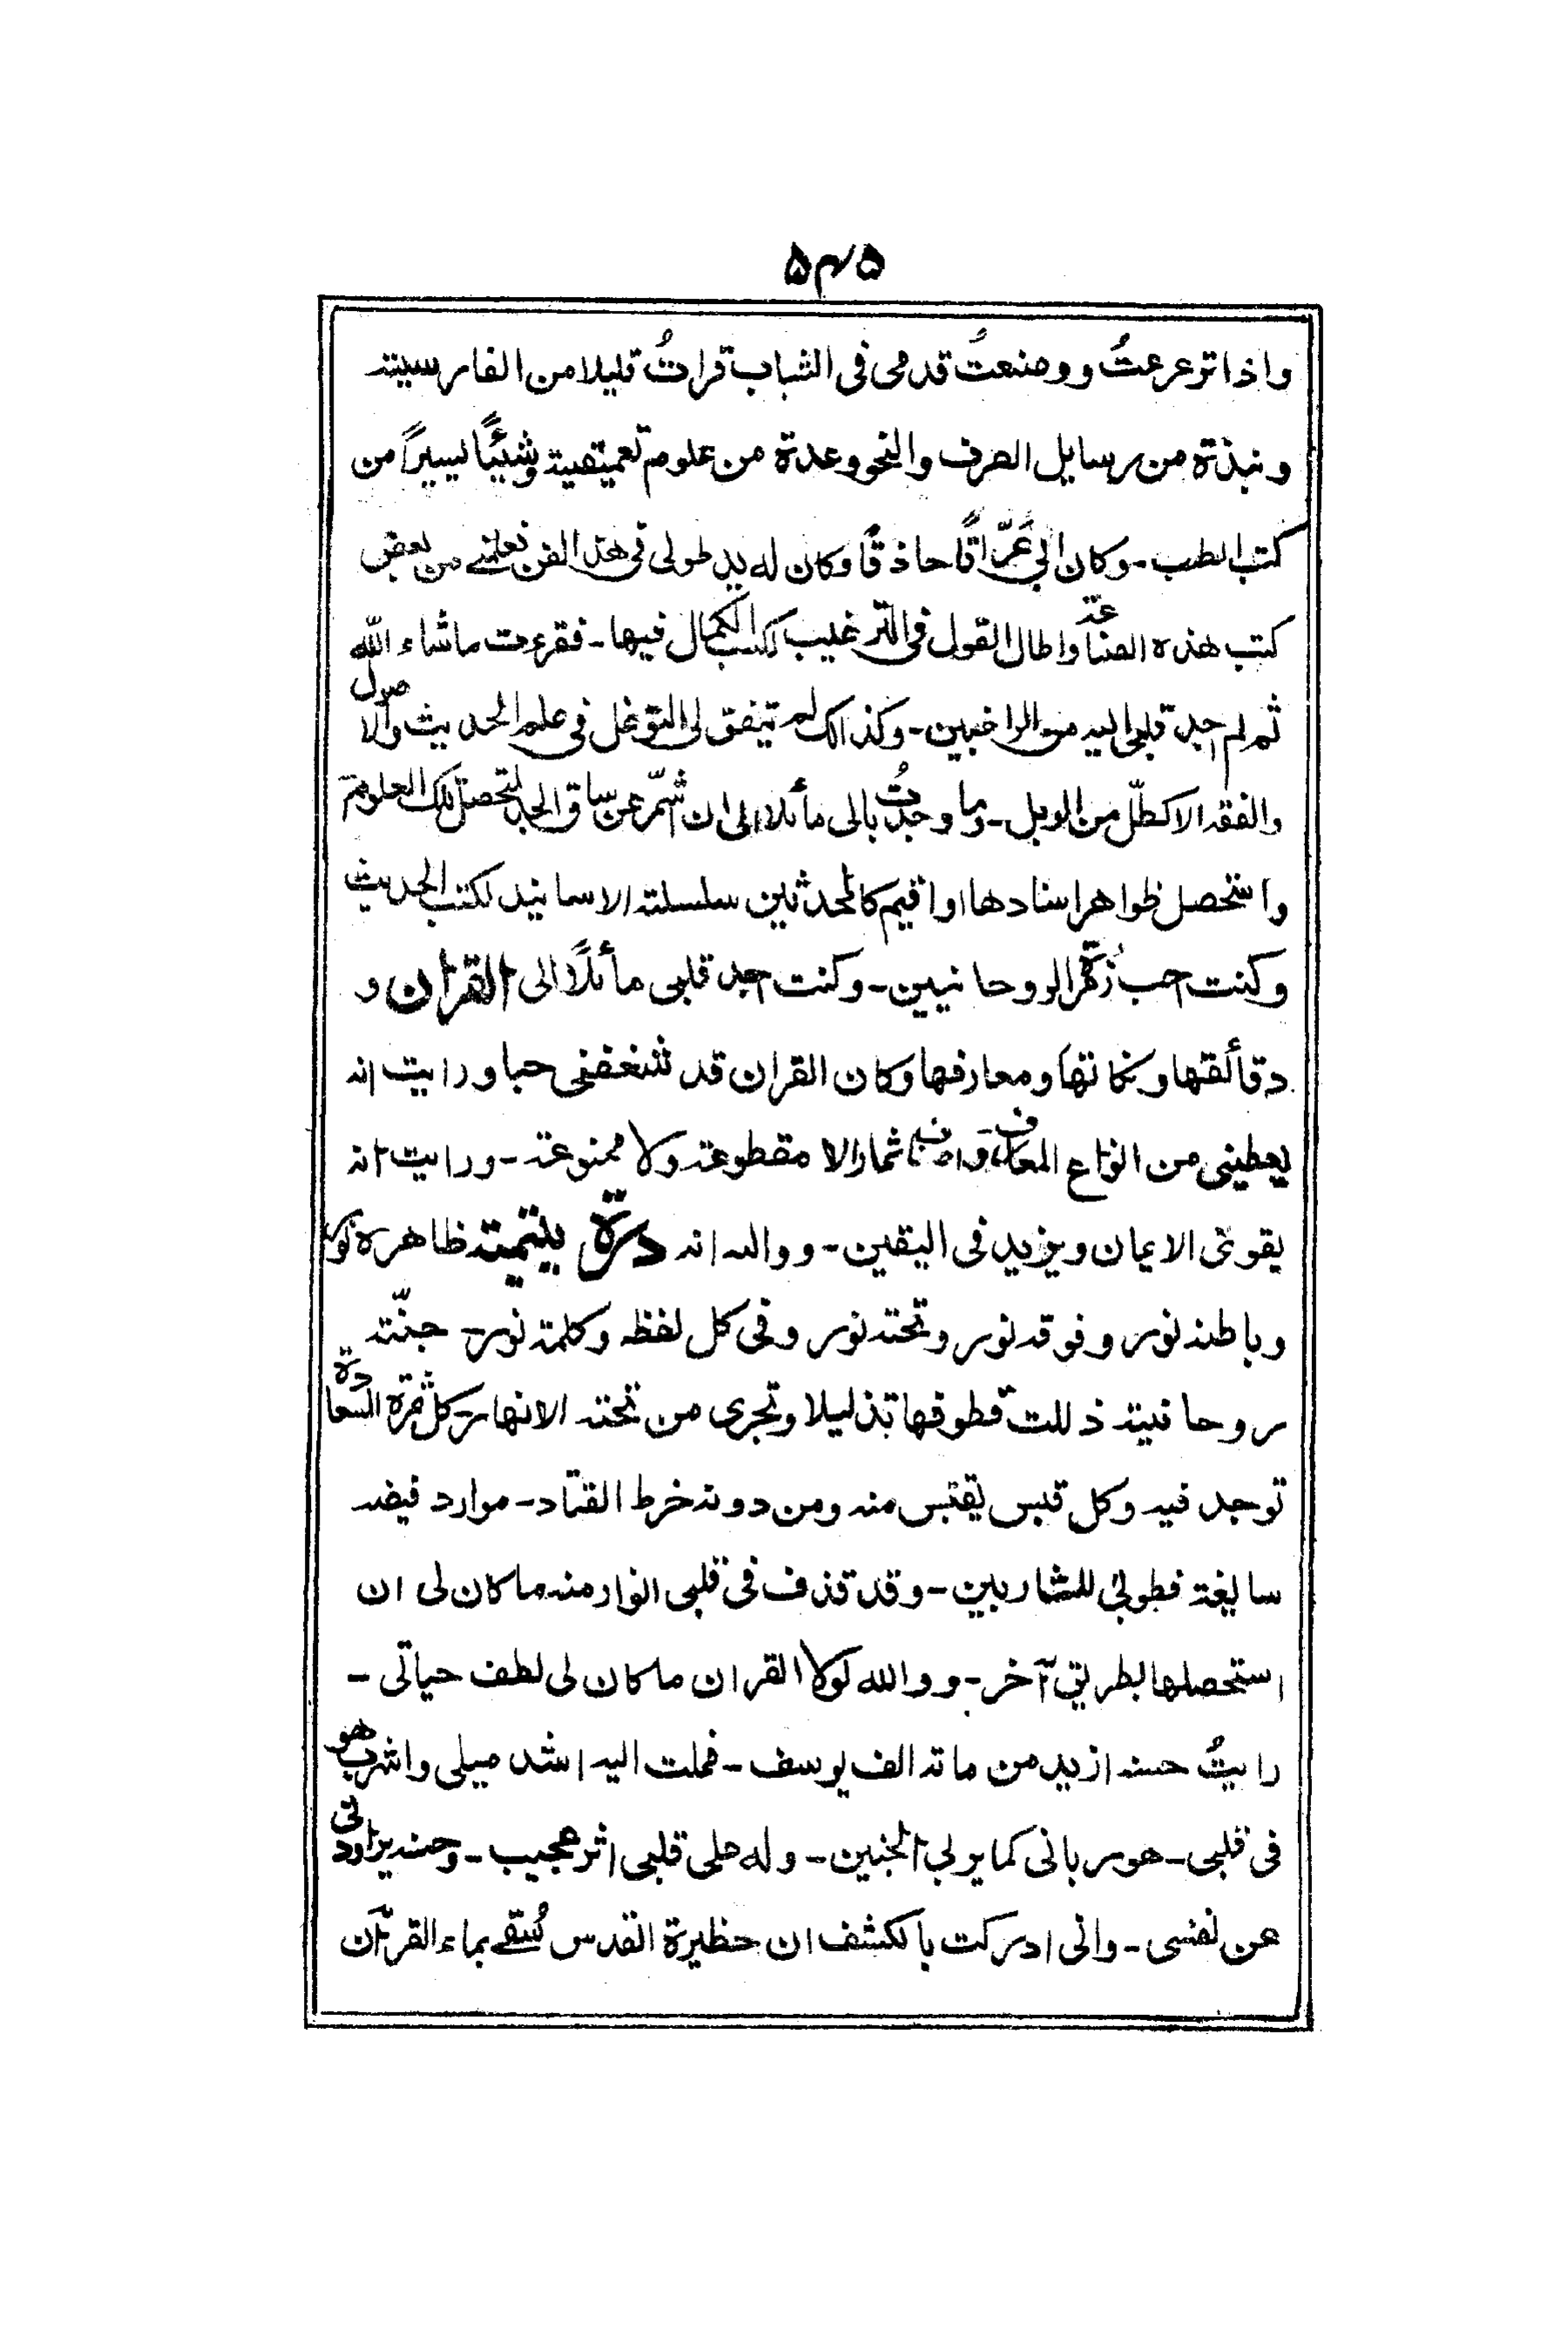 ۵۴۵
واذا ترعرعتُ ووضعتُ قدمی فی الشباب قراتُ قلیلا من الفارسیة
ونبذة من رسایل الصرف والنحو وعدة من علوم تعمیقیة وشیئًا یسیرًا من
کتب الطب - وکان ابی عرّافًا حاذقًا وکان له ید طولی فی هذا الفن فعلمنی من بعض
کتب هذه الصناعة واطال القول فی الترغیب لکسب الکمال فیها - فقرءت ماشاء الله
ثم لم اجد قلبی الیه من الراغبین - وکذالک لم یتفق لی التوغل فی علم الحدیث والاصول
والفقه الا کطلّ من الوبل - وما وجدتُ بالی مائلا الی ان اشمّر عن ساق الجد لتحصیل تلک العلوم
واستحصل ظواهر اسنادها او اقیم کالمحدثین سلسلة الاسانید لکتب الحدیث
وکنت احب زُمَر الروحانیین - وکنت اجد قلبی مائلًا الی القران و
دقائقها ونکاتها ومعارفها وکان القران قد شغفنی حبا ورایت انه
یعطینی من انواع المعارف واصناف ثمار لا مقطوعة ولا ممنوعة - ورایت انه
یقوی الایمان ویزید فی الیقین - ووالله انه درّة یتیمة ظاهره نور
وباطنه نور وفوقه نور وتحته نور وفی کل لفظه وکلمته نور - جنّة
روحانیة ذللت قطوفها تذلیلا وتجری من تحته الانهار - کل ثمرة السعادة
توجد فیه وکل قبس یقتبس منه ومن دونه خرط القتاد - موارد فیضه
سایغة فطوبی للشاربین - وقد قذف فی قلبی انوار منه ما کان لی ان
استحصلها بطریق آخر - ووالله لولا القران ما کان لی لطف حیاتی -
رایتُ حسنه ازید من مائة الف یوسف - فملت الیه اشد میلی واشرب هو
فی قلبی - هو ربانی کما یربی الجنین - وله علی قلبی اثر عجیب - وحسنه یراودنی
عن نفسی - وانی ادرکت بالکشف ان حظیرة القدس تُسقی بماء القرآن